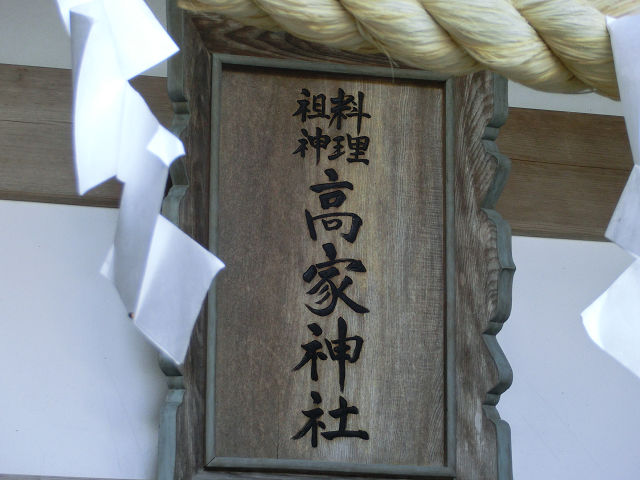 料理
祖神
高家神社